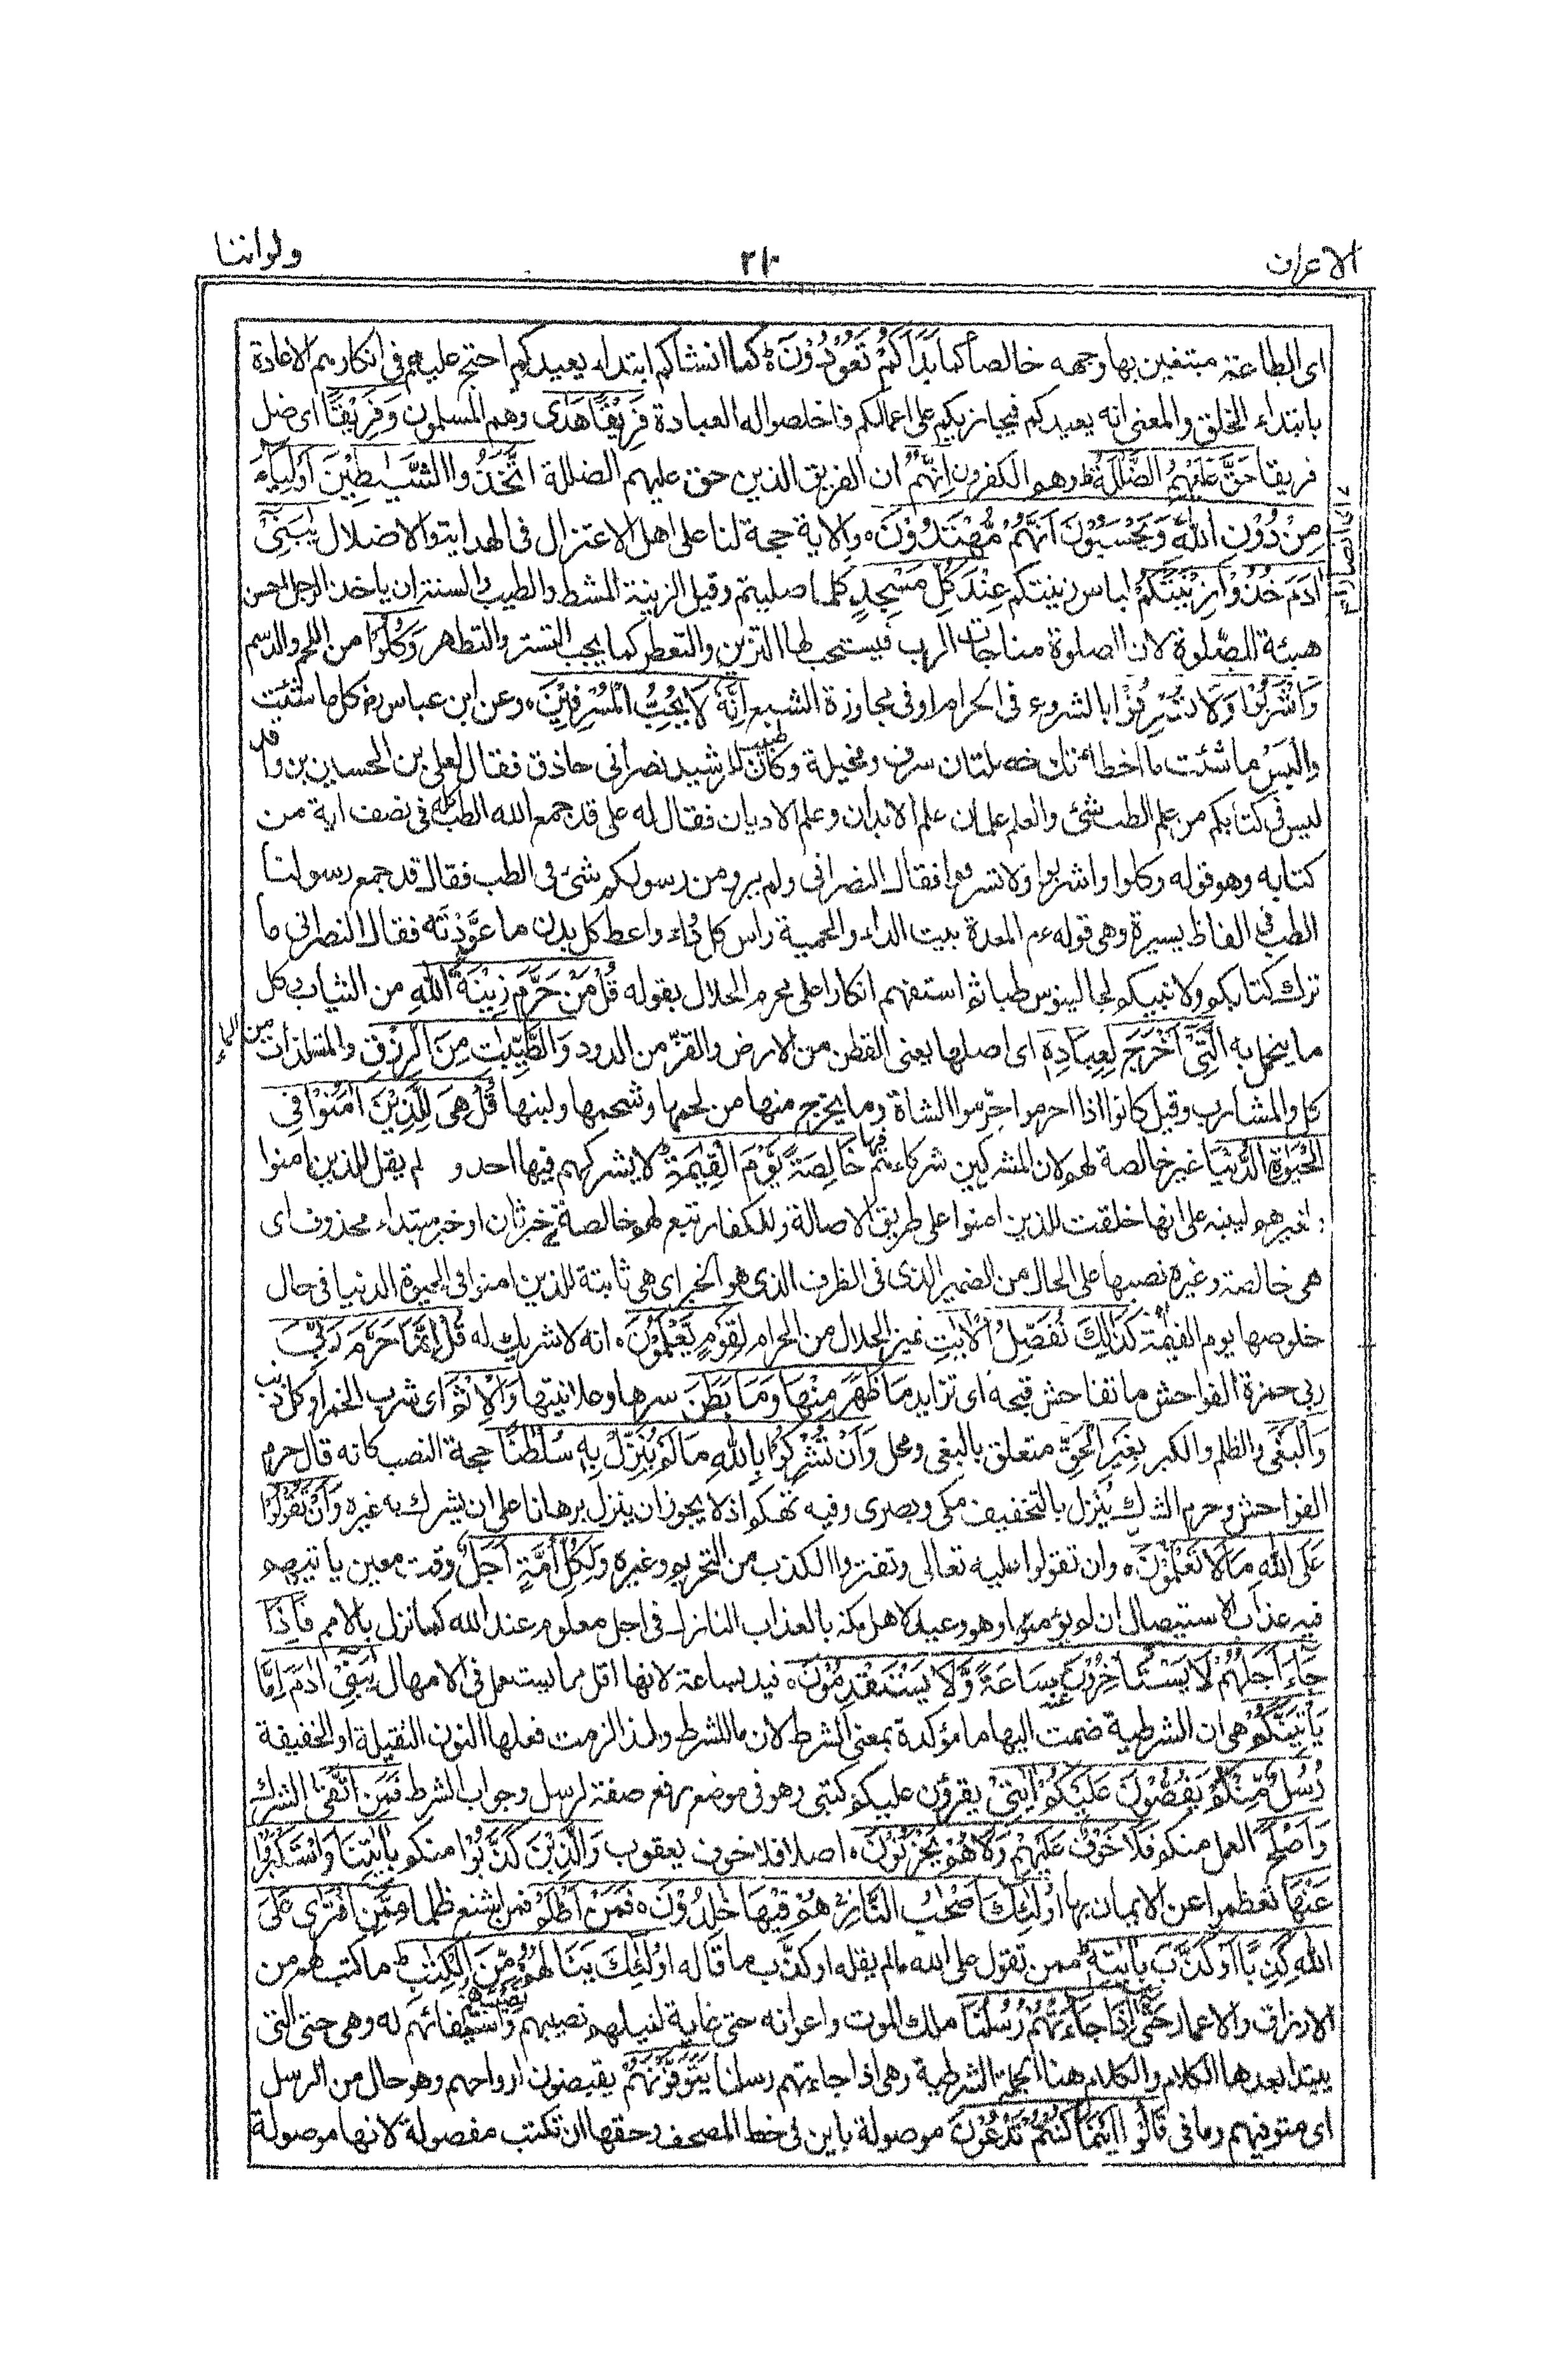 الاعراف
٢١٠
ولواننا
اى الطاعة مبتغين بها وجهه خالصا كَمَا بَدَاَكُمْ تَعُوْدُوْنَ ط كما انشاكم ابتداء يعيدكم احتج عليهم فى انكارهم الاعادة
بابتداء الخلق والمعنى انه يعيدكم فيجازيكم على اعمالكم فاخلصوا له العبادة فَرِيْقًا هَدٰى وهم المسلمون وَفَرِيْقًا اى ضل
فريقا حَقَّ عَلَيْهِمُ الضَّلٰلَةُ ط وهم الكفرون اِنَّهُمُ ان الفريق الذين حق عليهم الضللة اتَّخَذُوا الشَّيٰطِيْنَ اَوْلِيَآءَ
مِنْ دُوْنِ اللّٰهِ وَيَحْسَبُوْنَ اَنَّهُمْ مُّهْتَدُوْنَ ہ والاية حجة لنا على اهل الاعتزال فى الهداية والاضلال يٰبَنِىْٓ
اٰدَمَ خُذُوْا زِيْنَتَكُمْ لباس زينتكم عِنْدَ كُلِّ مَسْجِدٍ كلما صليتم وقيل الزينة المشط والطيب والسنة ان ياخذ الرجل احسن
هيئة للصلوة لان الصلوة مناجات الرب فيستحب لها التزين والتعطر كما يجب التستر والتطهر وَكُلُوْا من اللحم والدسم
وَاشْرَبُوْا وَلَا تُسْرِفُوْا بالشروع فى الحرام او فى مجاوزة الشبع اِنَّهٗ لَا يُحِبُّ الْمُسْرِفِيْنَ ہ وعن ابن عباس رض كل ما شئت
والبس ما شئت ما اخطاتك خصلتان سرف ومخيلة وكان للرشيد طبيب نصرانى حاذق فقال لعلى بن الحسين بن واقد
ليس فى كتابكم من علم الطب شئ والعلم علمان علم الابدان وعلم الاديان فقال له على قد جمع الله الطب كله فى نصف اية من
كتابه وهو قوله وكلوا واشربوا ولا تسرفوا فقال النصرانى ولم يرو من رسولكم شئ فى الطب فقال قد جمع رسولنا
الطب فى الفاظ يسيرة وهى قوله ء م المعدة بيت الداء والحمية راس كل دواء واعط كل بدن ما عوَّدْتَه فقال النصرانى ما
ترك كتابكم ولا نبيكم لجالينوس طبا ثم استفهم انكارا على محرم الحلال بقوله قُلْ مَنْ حَرَّمَ زِيْنَةَ اللّٰهِ من الثياب وكل
ما يتجمل به الَّتِىْٓ اَخْرَجَ لِعِبَادِهٖ اى اصلها يعنى القطن من الارض والقزّ من الدود وَالطَّيِّبٰتِ مِنَ الرِّزْقِ والمستلذات من الما
كل والمشارب وقيل كانوا اذا احرموا حرّموا الشاة وما يخرج منها من لحمها وشحمها ولبنها قُلْ هِىَ لِلَّذِيْنَ اٰمَنُوْا فِى
الْحَيٰوةِ الدُّنْيَا غير خالصة لهم لان المشركين شركاءهم فيها خَالِصَةً يَّوْمَ الْقِيٰمَةِ ط لا يشركهم فيها احد و لم يقل للذين امنوا
و لغيرهم لينبه على انها خلقت للذين امنوا على طريق الاصالة وللكفار تبع لهم خالصة خبر ثان او خبر مبتداء محذوف اى
هى خالصة وغيره نصبها على الحال من الضمير الذى فى الظرف الذى هو الخبر اى هى ثابتة للذين امنوا فى الحيوة الدنيا فى حال
خلوصها يوم القيمة كَذٰلِكَ نُفَصِّلُ الْاٰيٰتِ نميز الحلال من الحرام لِقَوْمٍ يَّعْلَمُوْنَ ہ انه لا شريك له قُلْ اِنَّمَا حَرَّمَ رَبِّىَ
ربى حمزة الفواحش ما تفاحش قبحه اى تزايد مَا ظَهَرَ مِنْهَا وَمَا بَطَنَ سرها وعلانيتها وَالْاِثْمَ اى شرب الخمر او كل ذنب
وَالْبَغْىَ والظلم والكبر بِغَيْرِ الْحَقِّ متعلق بالبغى ومحل وَاَنْ تُشْرِكُوْا بِاللّٰهِ مَا لَمْ يُنَزِّلْ بِهٖ سُلْطٰنًا حجة النصب كانه قال حرم
الفواحش وحرم الشرك يُنْزِل بالتخفيف مكى وبصرى وفيه تهكم اذ لا يجوز ان ينزل برهانا على ان يشرك به غيره وَاَنْ تَقُوْلُوْا
عَلَى اللّٰهِ مَا لَا تَعْلَمُوْنَ ہ وان تقولوا عليه تعالى وتفتروا الكذب من التحريم وغيره وَلِكُلِّ اُمَّةٍ اَجَلٌ وقت معين ياتيهم
فيه عذاب الاستيصال ان لم يؤمنوا وهو وعيد لاهل مكة بالعذاب النازل فى اجل معلوم عند الله كما نزل بالامم فَاِذَا
جَآءَ اَجَلُهُمْ لَا يَسْتَاْخِرُوْنَ سَاعَةً وَّلَا يَسْتَقْدِمُوْنَ ہ قيد بساعة لانها اقل ما يستعمل فى الامهال يٰبَنِىْٓ اٰدَمَ اِمَّا
يَاْتِيَنَّكُمْ هى ان الشرطية ضمت اليها ما مؤكدة بمعنى الشرط لان ما للشرط ولذا لزمت فعلها النون الثقيلة او الخفيفة
رُسُلٌ مِّنْكُمْ يَقُصُّوْنَ عَلَيْكُمْ اٰيٰتِىْ يقرؤن عليكم كتبى وهو فى موضع رفع صفة لرسل وجواب الشرط فَمَنِ اتَّقٰى الشرك
وَاَصْلَحَ العمل منكم فَلَا خَوْفٌ عَلَيْهِمْ وَلَا هُمْ يَحْزَنُوْنَ ہ اصلا فلا خوف يعقوب وَالَّذِيْنَ كَذَّبُوْا منكم بِاٰيٰتِنَا وَاسْتَكْبَرُوْا
عَنْهَا تعظموا عن الايمان بها اُولٰٓئِكَ اَصْحٰبُ النَّارِ هُمْ فِيْهَا خٰلِدُوْنَ ہ فَمَنْ اَظْلَمُ فمن اشنع ظلما مِمَّنِ افْتَرٰى عَلَى
اللّٰهِ كَذِبًا اَوْ كَذَّبَ بِاٰيٰتِهٖ ممن تقول على الله ما لم يقله او كذّب ما قاله اُولٰٓئِكَ يَنَالُهُمْ نَصِيْبُهُمْ مِّنَ الْكِتٰبِ ط ما كتب لهم من
الارزاق والاعمار حَتّٰى اِذَا جَآءَتْهُمْ رُسُلُنَا ملك الموت واعوانه حتى غاية لنيلهم نصيبهم واستيفائهم له وهى حتى التى
يبتدا بعدها الكلام والكلام هنا الجملة الشرطية وهى اذا جاءتهم رسلنا يَتَوَفَّوْنَهُمْ يقبضون ارواحهم وهو حال من الرسل
اى متوفيهم وما فى قَالُوْٓا اَيْنَمَا كُنْتُمْ تَدْعُوْنَ موصولة باين فى خط المصحف وحقها ان تكتب مفصولة لانها موصولة